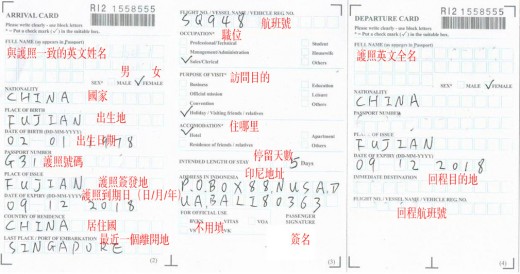 ARRIVAL CARD
RI2 1558555
Please write clearly - use block letters
* Put a check mark (√) in the suitable box.
FULL NAME (as appears in Passport)
與護照一致的英文姓名
男 女
SEX* MALE √ FEMALE
NATIONALITY
CHINA 國家
PLACE OF BIRTH
FUJIAN 出生地
DATE OF BIRTH (DD-MM-YYYY)
出生日期
02 01
PASSPORT NUMBER
G31 護照號碼
PLACE OF ISSUE
FUJIAN 護照簽發地
DATE OF EXPIRY (DD-MM-YYYY) 護照到期日(日/月/年)
09 12 2018
COUNTRY OF RESIDENCE
CHINA 居住國
LAST PLACE / PORT OF EMBARKATION 最近一個離開地
SINGAPURE
(2)
FLIGHT NO. / VESSEL NAME / VEHICLE REG NO.
SQ948 航班號
OCCUPATION* 職位
Professional/Technical
Student
Management/Administration
Housewife
√ Sales/Clerical
Others
PURPOSE OF VISIT* 訪問目的
Business
Education
Official mission
Leisure
Convention
Others
√ Holiday / Visiting friends / relatives
ACCOMODATION* 住哪里
√ Hotel
Apartment
Residence of friends / relatives
Others
停留天數
INTENDED LENGTH OF STAY 5 Days
ADDRESS IN INDONESIA 印尼地址
P.O.BOX88,NUSA.D
UA,BALI80363
FOR OFFICIAL USE
PASSENGER SIGNATURE
不用填
簽名
(3)
DEPARTURE CARD
RI2 1558555
Please write clearly - use block letters
* Put a check mark (√) in the suitable box.
FULL NAME (as appears in Passport)
護照英文全名
SEX* MALE √ FEMALE
NATIONALITY
CHINA
PASSPORT NUMBER
OF ISSUE
FUJIAN
DATE OF EXPIRY (DD-MM-YYYY)
09 12 2018
IMMEDIATE DESTINATION 回程目的地
FLIGHT NO. / VESSEL NAME / VEHICLE REG NO.
回程航班號
(4)